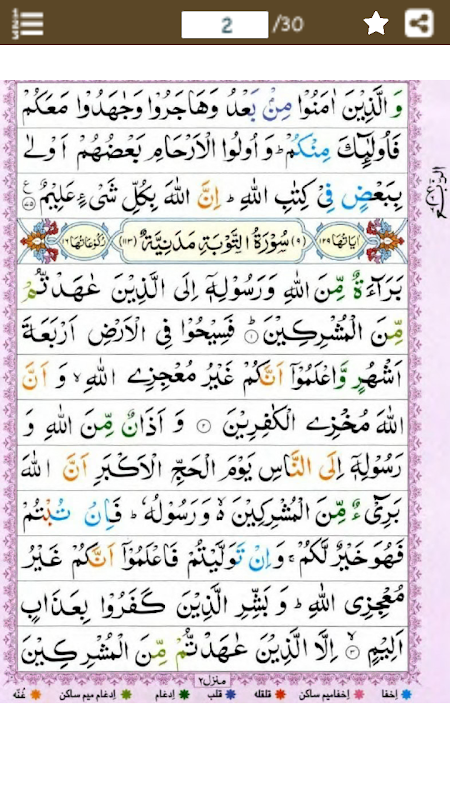 2 /30
وَ الَّذِيْنَ اٰمَنُوْا مِنْۢ بَعْدُ وَهَاجَرُوْا وَجٰهَدُوْا مَعَكُمْ
فَاُولٰٓئِكَ مِنْكُمْ ؕ وَ اُولُوا الْاَرْحَامِ بَعْضُهُمْ اَوْلٰى
بِبَعْضٍ فِيْ كِتٰبِ اللّٰهِ ؕ اِنَّ اللّٰهَ بِكُلِّ شَيْءٍ عَلِيْمٌ ۷۵
اٰيَاتُهَا ۱۲۹ (۹) سُوْرَةُ التَّوْبَةِ مَدَنِيَّةٌ (۱۱۳) رُكُوْعَاتُهَا ۱۶
بَرَآءَةٌ مِّنَ اللّٰهِ وَرَسُوْلِهٖٓ اِلَى الَّذِيْنَ عٰهَدْتُّمْ
مِّنَ الْمُشْرِكِيْنَ ؕ ۱ فَسِيْحُوْا فِي الْاَرْضِ اَرْبَعَةَ
اَشْهُرٍ وَّاعْلَمُوْٓا اَنَّكُمْ غَيْرُ مُعْجِزِي اللّٰهِ ۙ وَ اَنَّ
اللّٰهَ مُخْزِي الْكٰفِرِيْنَ ۲ وَ اَذَانٌ مِّنَ اللّٰهِ وَ
رَسُوْلِهٖٓ اِلَى النَّاسِ يَوْمَ الْحَجِّ الْاَكْبَرِ اَنَّ اللّٰهَ
بَرِيْٓءٌ مِّنَ الْمُشْرِكِيْنَ ۙ وَرَسُوْلُهٗ ؕ فَاِنْ تُبْتُمْ
فَهُوَ خَيْرٌ لَّكُمْ ۚ وَاِنْ تَوَلَّيْتُمْ فَاعْلَمُوْٓا اَنَّكُمْ غَيْرُ
مُعْجِزِي اللّٰهِ ؕ وَ بَشِّرِ الَّذِيْنَ كَفَرُوْا بِعَذَابٍ
اَلِيْمٍ ۙ ۳ اِلَّا الَّذِيْنَ عٰهَدْتُّمْ مِّنَ الْمُشْرِكِيْنَ
منزل ۲
اِخفا اِخفامیم ساکن قلقله قلب اِدغام اِدغام میم ساکن غُنّه